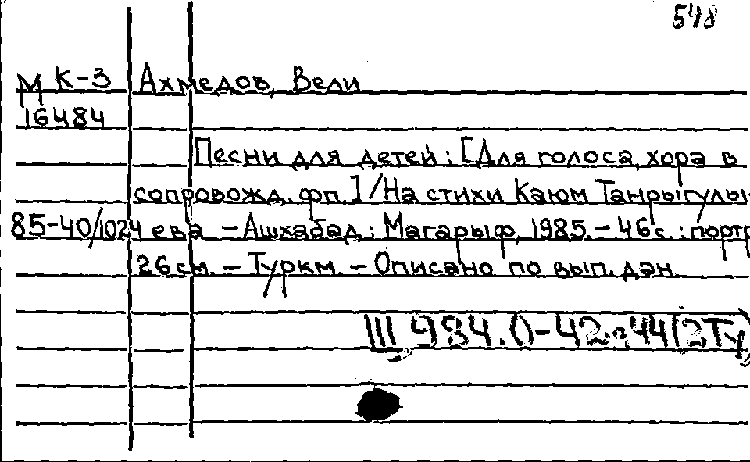 548
М К-3 Ахмедов, Вели
16484
Песни для детей : [Для голоса, хора в
сопровожд. фп.] / На стихи Каюм Танрыгулы-
85-40/1024 ева. - Ашхабад : Магарыф, 1985. - 46 с. : портр
26 см. - Туркм. - Описано по вып. дан.